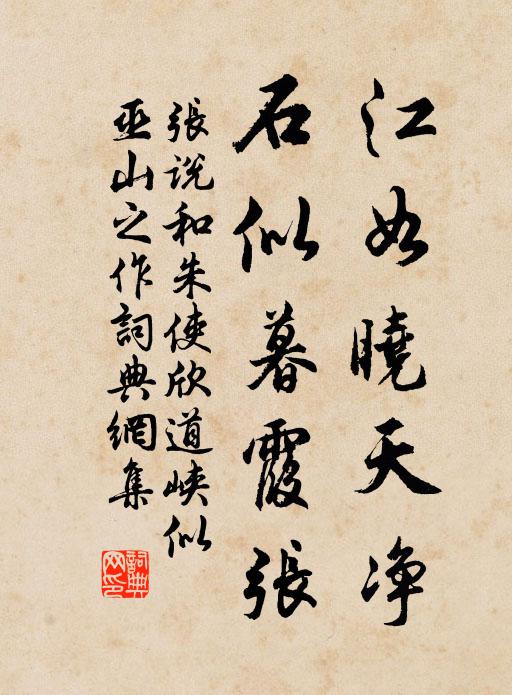 江如曉天净
石似暮霞張
張說和朱使欣道峽似
巫山之作詞典網集
詞典网印